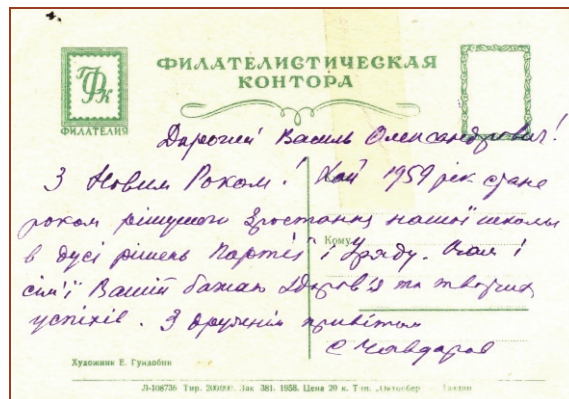 ФИЛАТЕЛИСТИЧЕСКАЯ
КОНТОРА
ФК
ФИЛАТЕЛИЯ
Дорогий Василь Олександрович!
З Новим Роком! Хай 1959 рік стане
роком рішучого зростання нашої школы
в дусі рішень Партії і Уряду. Вам і
Кому
сім'ї Вашій бажаю здоров'я та творчих
успіхів. З дружнім привітом
С Чавдаров
Художник Е. Гундобин
Л-108736 Тир. Зак 381. 1958. Цена 20 к. Тип.